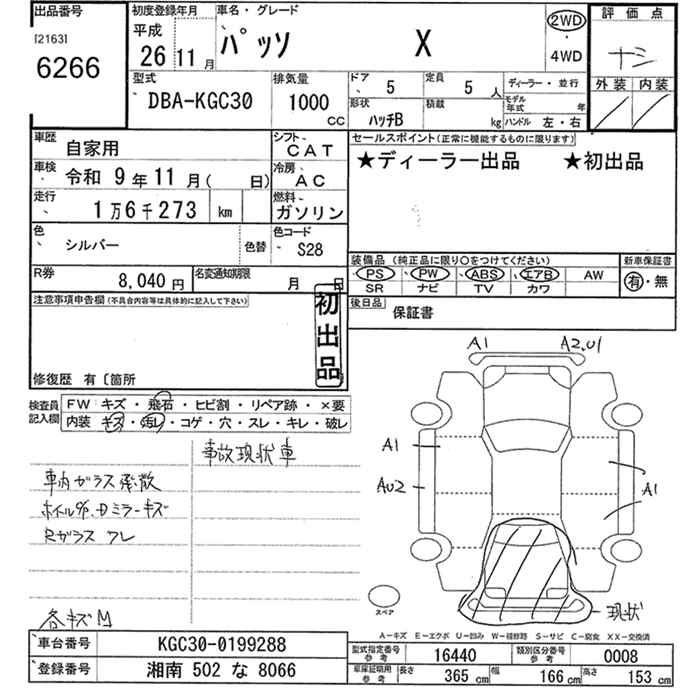 出品番号
[2163]
6266
初度登録年月
平成
26 11 月
車名・グレード
パッソ X
2WD
・
4WD
評価点
ナシ
外装 内装
型式
DBA-KGC30
排気量
1000
CC
ドア 5
定員 5 人
形状
ハッチB
積載 kg
ディーラー・並行
モデル
年式 年
ハンドル 左・右
車歴 自家用
シフト CAT
車検 令和 9年11月( 日)
冷房 AC
走行 1万6千273 km
燃料 ガソリン
色 シルバー 色替
色コード S28
R券 8,040円
名変通知期限 月 日
セールスポイント(正常に機能するものに限ります)
★ディーラー出品 ★初出品
装備品 (純正品に限り○をつけてください)
PS PW ABS エアB AW
SR ナビ TV カワ
新車保証書
有・無
後日品 保証書
注意事項申告欄(不具合内容等は具体的に記入して下さい)
初出品
修復歴 有〔箇所
検査員
記入欄
FW キズ・飛石・ヒビ割・リペア跡・×要
内装 キズ・汚レ・コゲ・穴・スレ・キレ・破レ
事故現状車
車内ガラス散
ホイル%、Dミラーキズ
Rガラス ワレ
各キズM
A1 A2.U1
A1
AU2
A1
現状
スペア
A－キズ E－エクボ U－凹み W－補修跡 S－サビ C－腐食 XX－交換済
車台番号 KGC30-0199288
登録番号 湘南 502 な 8066
型式指定番号
参考
16440
類別区分番号
参考
0008
車庫証明用
参考
長さ 365 cm 幅 166 cm 高さ 153 cm